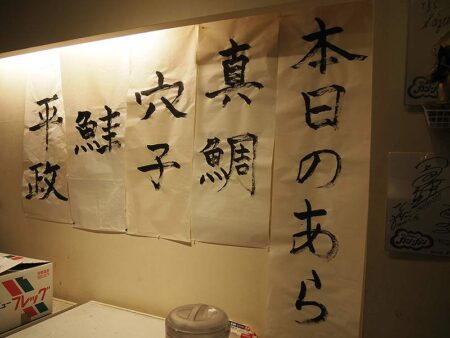 本日のあら
真鯛
穴子
鮭
平政
フレッグ